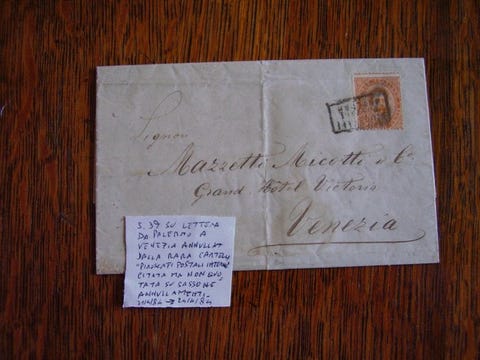 Signori
Mazzetti Micotti e C.
Grand Hotel Victoria
Venezia
S. 39 SU LETTERA
DA PALERMO A
VENEZIA ANNULLAT
DALLA RARA CARTELLA
"PIROSCAFI POSTALI INTERNI"
CITATA MA NON QUO
TATA SU SASSONE
ANNULLAMENTI